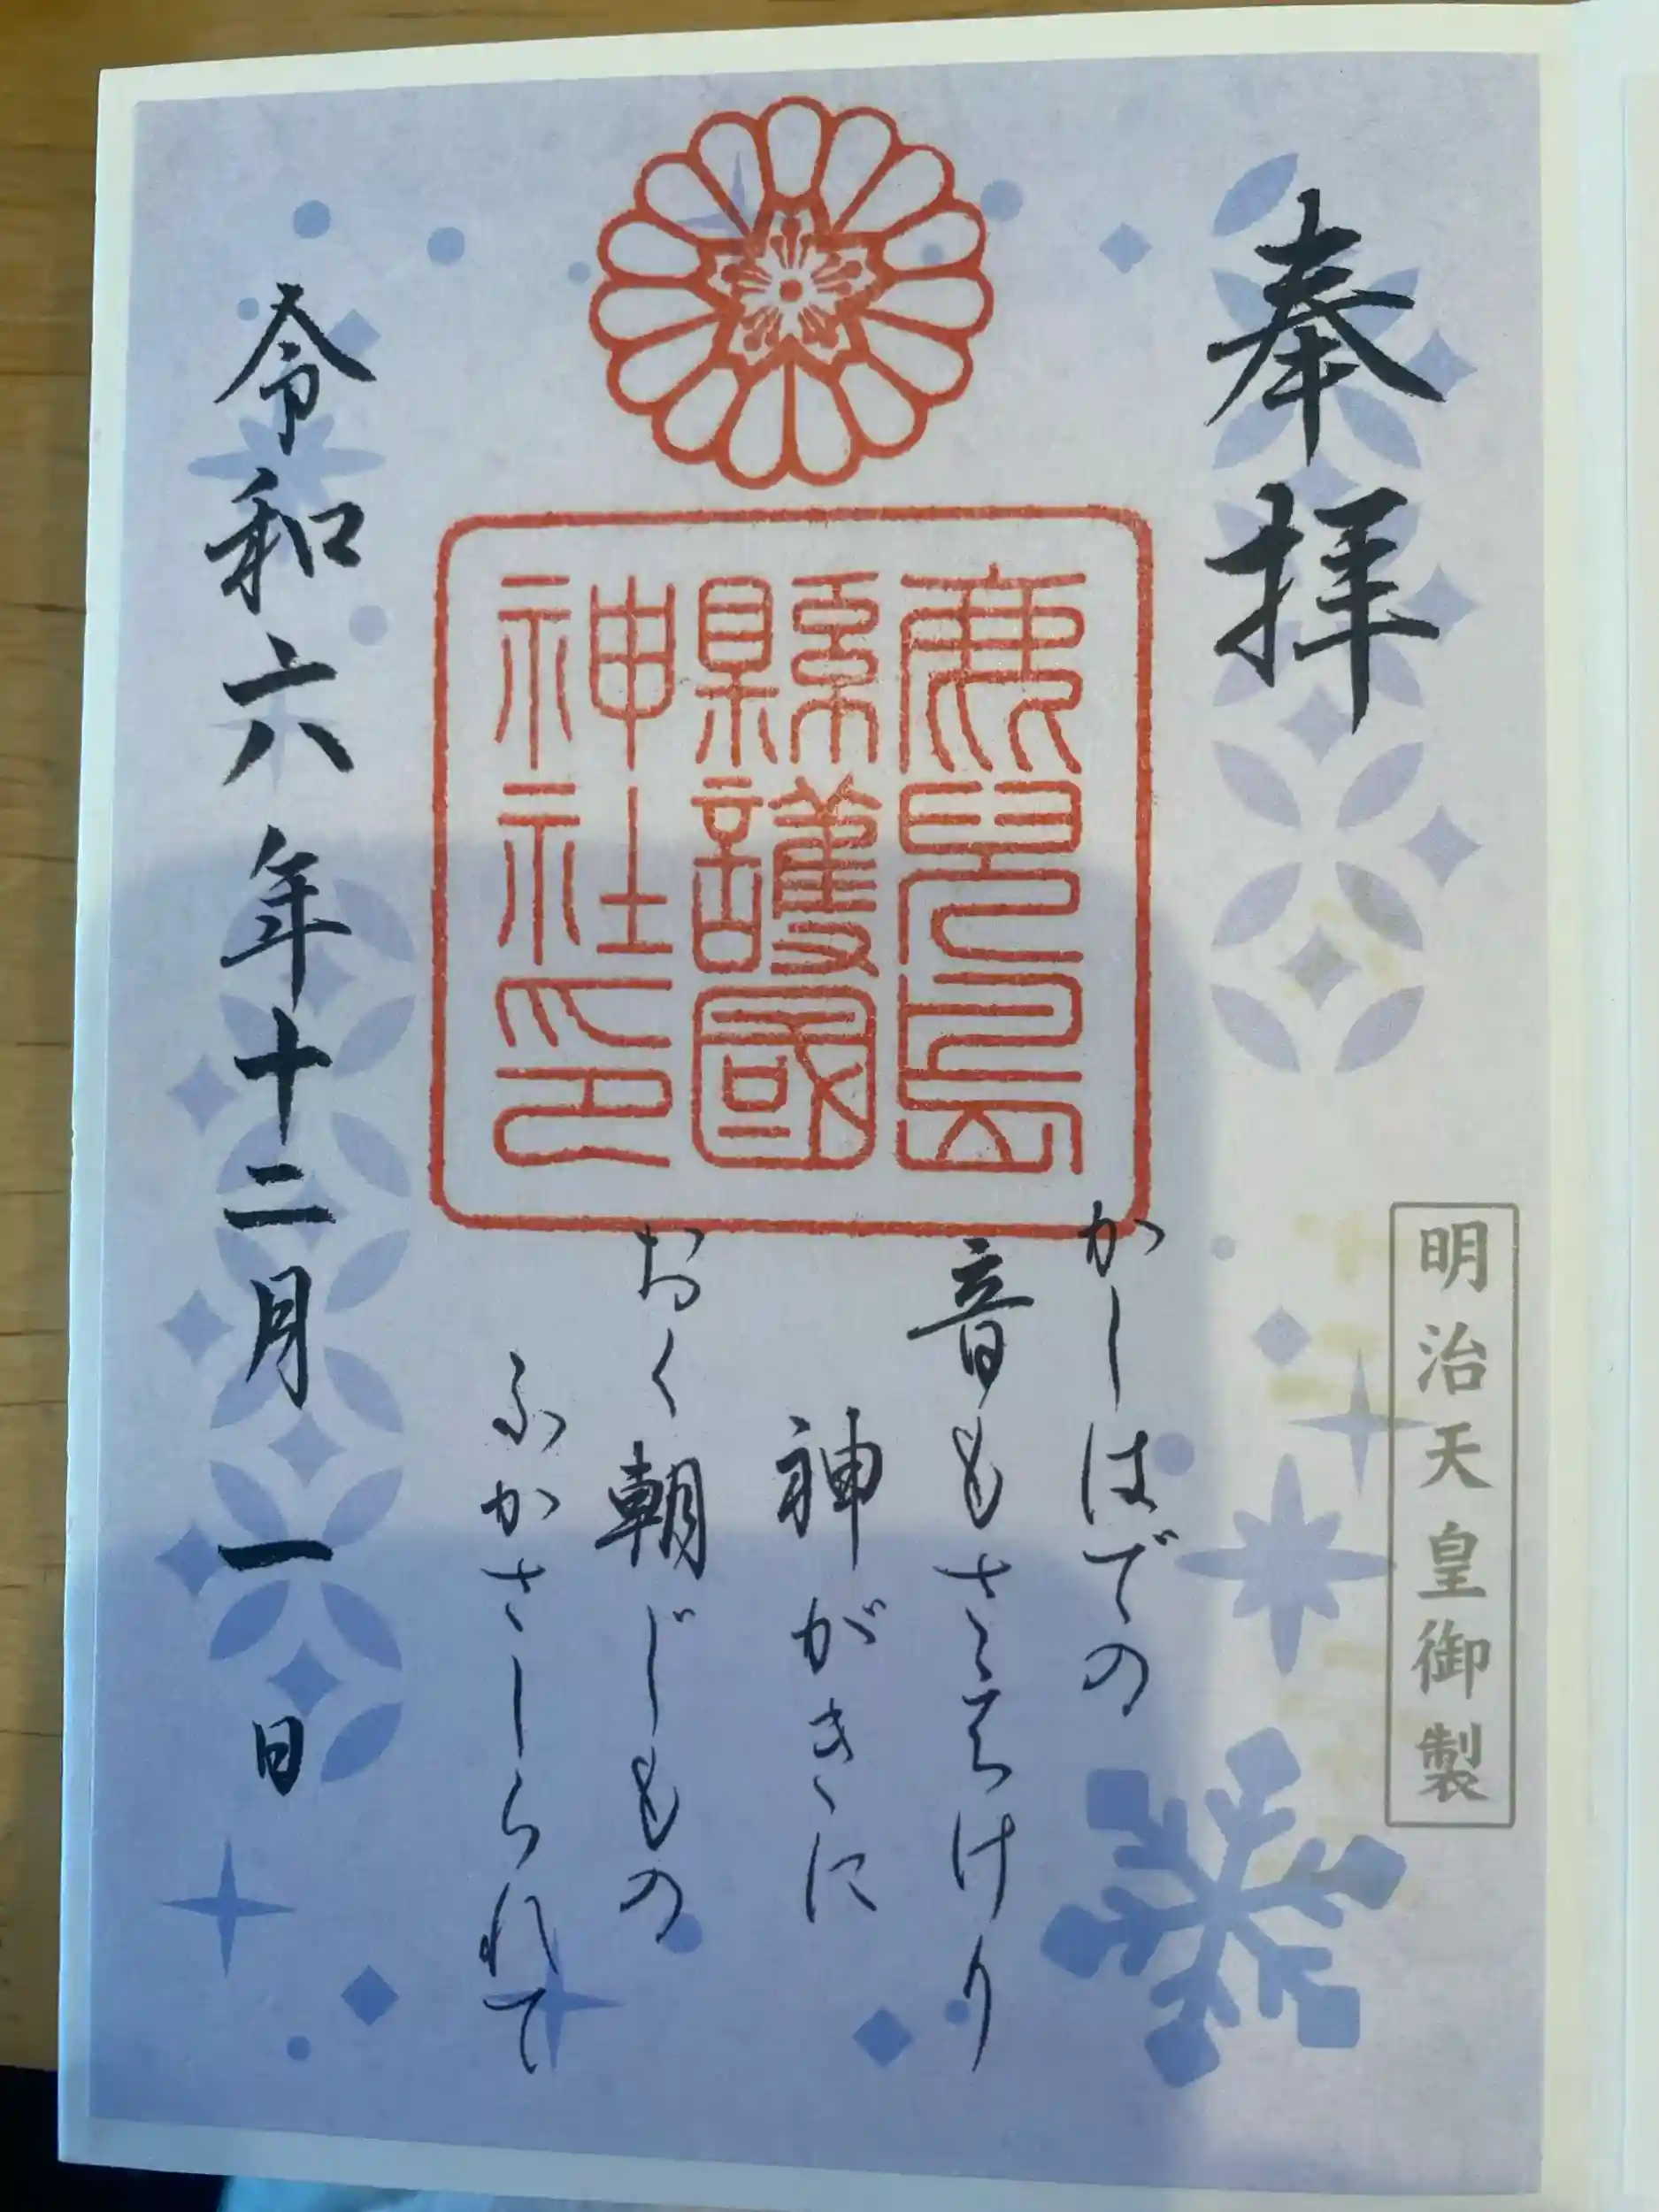 奉拝
明治天皇御製
鹿兒島
縣護國
神社印
かしはでの
音もさえけり
神がきに
おく朝じもの
ふかさしられて
令和六年十二月一日